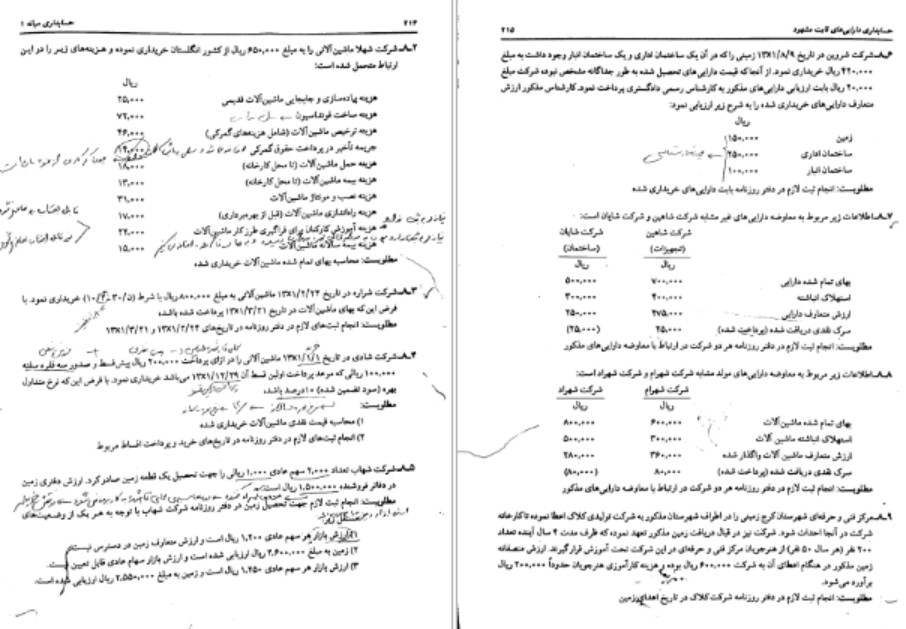 ۲۱۴
حسابداری میانه ۱
۲ـ۸ـ شرکت شهلا ماشین‌آلاتی را به مبلغ ۶۵۰,۰۰۰ ریال از کشور انگلستان خریداری نموده و هزینه‌های زیر را در این
ارتباط متحمل شده است:
ریال
هزینه پیاده‌سازی و جابجایی ماشین‌آلات قدیمی ۲۵,۰۰۰
هزینه ساخت فونداسیون ۷۲,۰۰۰
هزینه ترخیص ماشین‌آلات (شامل هزینه‌های گمرکی) ۴۶,۰۰۰
جریمه تأخیر در پرداخت حقوق گمرکی ۱۲,۰۰۰
هزینه حمل ماشین‌آلات (تا محل کارخانه) ۱۸,۰۰۰
هزینه بیمه ماشین‌آلات (تا محل کارخانه) ۱۳,۰۰۰
هزینه نصب و مونتاژ ماشین‌آلات ۳۱,۰۰۰
هزینه راه‌اندازی ماشین‌آلات (قبل از بهره‌برداری) ۱۷,۰۰۰
هزینه آموزش کارکنان برای فراگیری طرز کار ماشین‌آلات ۲۲,۰۰۰
هزینه بیمه سالانه ماشین‌آلات ۱۵,۰۰۰
مطلوبست: محاسبه بهای تمام شده ماشین‌آلات خریداری شده
۳ـ۸ـ شرکت شراره در تاریخ ۱۳X۱/۲/۲۴ ماشین‌آلاتی به مبلغ ۸۰۰,۰۰۰ ریال با شرط (۳۰/ن-۱۰/۲) خریداری نمود. با
فرض این‌که بهای ماشین‌آلات در تاریخ ۱۳X۱/۳/۲۱ پرداخت شده باشد؛
مطلوبست: انجام ثبت‌های لازم در دفتر روزنامه در تاریخ‌های ۱۳X۱/۲/۲۴ و ۱۳X۱/۳/۲۱
۴ـ۸ـ شرکت شادی در تاریخ ۱۳X۱/۱/۱ ماشین آلاتی را در ازای پرداخت ۲۰۰,۰۰۰ ریال پیش‌قسط و صدور سه فقره سفته
۱۰۰,۰۰۰ ریالی که موعد پرداخت اولین قسط آن ۱۳X۱/۱۲/۲۹ می‌باشد خریداری نمود. با فرض این‌که نرخ متداول
بهره (سود تضمین شده) ۱۰ درصد باشد،
مطلوبست:
۱) محاسبه قیمت نقدی ماشین‌آلات خریداری شده
۲) انجام ثبت‌های لازم در دفتر روزنامه در تاریخ‌های خرید و پرداخت اقساط مربوط
۵ـ۸ـ شرکت شهاب تعداد ۲,۰۰۰ سهم عادی ۱,۰۰۰ ریالی را جهت تحصیل یک قطعه زمین صادر کرد. ارزش دفتری زمین
در دفاتر فروشنده ۱,۵۰۰,۰۰۰ ریال است.
مطلوبست: انجام ثبت لازم جهت تحصیل زمین در دفتر روزنامه شرکت شهاب با توجه به هر یک از وضعیت‌های
۱) ارزش بازار هر سهم عادی ۱,۲۰۰ ریال است و ارزش متعارف زمین در دسترس نیست.
۲) زمین به مبلغ ۲,۶۰۰,۰۰۰ ریال ارزیابی شده است و ارزش بازار سهام عادی قابل تعیین نیست.
۳) ارزش بازار هر سهم عادی ۱,۲۵۰ ریال است و زمین به مبلغ ۲,۵۵۰,۰۰۰ ریال ارزیابی شده است.
حسابداری دارایی‌های ثابت مشهود
۲۱۵
۶ـ۸ـ شرکت شروین در تاریخ ۱۳X۱/۸/۹ زمینی را که در آن یک ساختمان اداری و یک ساختمان انبار وجود داشت به مبلغ
۴۲۰,۰۰۰ ریال خریداری نمود. از آنجا که قیمت دارایی‌های تحصیل شده به طور جداگانه مشخص نبوده شرکت مبلغ
۲۰,۰۰۰ ریال بابت ارزیابی دارایی‌های مذکور به کارشناس رسمی دادگستری پرداخت نمود. کارشناس مذکور ارزش
متعارف دارایی‌های خریداری شده را به شرح زیر ارزیابی نمود:
ریال
زمین ۱۵۰,۰۰۰
ساختمان اداری ۲۵۰,۰۰۰
ساختمان انبار ۱۰۰,۰۰۰
مطلوبست: انجام ثبت لازم در دفتر روزنامه بابت دارایی‌های خریداری شده
۷ـ۸ـ اطلاعات زیر مربوط به معاوضه دارایی‌های غیر مشابه شرکت شاهین و شرکت شایان است:
شرکت شاهین شرکت شایان
(تجهیزات) (ساختمان)
ریال ریال
بهای تمام شده دارایی ۷۰۰,۰۰۰ ۵۰۰,۰۰۰
استهلاک انباشته ۴۰۰,۰۰۰ ۳۰۰,۰۰۰
ارزش متعارف دارایی ۲۷۵,۰۰۰ ۲۵۰,۰۰۰
سرک نقدی دریافت شده (پرداخت شده) ۲۵,۰۰۰ (۲۵,۰۰۰)
مطلوبست: انجام ثبت لازم در دفتر روزنامه هر دو شرکت در ارتباط با معاوضه دارایی‌های مذکور
۸ـ۸ـ اطلاعات زیر مربوط به معاوضه دارایی‌های مولد مشابه شرکت شهرام و شرکت شهراد است:
شرکت شهرام شرکت شهراد
ریال ریال
بهای تمام شده ماشین‌آلات ۶۰۰,۰۰۰ ۸۰۰,۰۰۰
استهلاک انباشته ماشین آلات ۳۰۰,۰۰۰ ۵۰۰,۰۰۰
ارزش متعارف ماشین آلات واگذار شده ۳۶۰,۰۰۰ ۲۸۰,۰۰۰
سرک نقدی دریافت شده (پرداخت شده) ۸۰,۰۰۰ (۸۰,۰۰۰)
مطلوبست: انجام ثبت لازم در دفتر روزنامه هر دو شرکت در ارتباط با معاوضه دارایی‌های مذکور
۹ـ۸ـ مرکز فنی و حرفه‌ای شهرستان کرج زمینی را در اطراف شهرستان مذکور به شرکت تولیدی کلاک اعطا نموده تا کارخانه
شرکت در آنجا احداث شود. شرکت نیز در قبال دریافت زمین مذکور تعهد نموده که ظرف مدت ۴ سال آینده تعداد
۲۰۰ نفر (هر سال ۵۰ نفر) از هنرجویان مرکز فنی و حرفه‌ای در این شرکت تحت آموزش قرار گیرند. ارزش منصفانه
زمین مذکور در هنگام اعطای آن به شرکت ۶۰۰,۰۰۰ ریال بوده و هزینه کارآموزی هنرجویان حدوداً ۲۰۰,۰۰۰ ریال
برآورد می‌شود.
مطلوبست: انجام ثبت لازم در دفتر روزنامه شرکت کلاک در تاریخ اهدای زمین